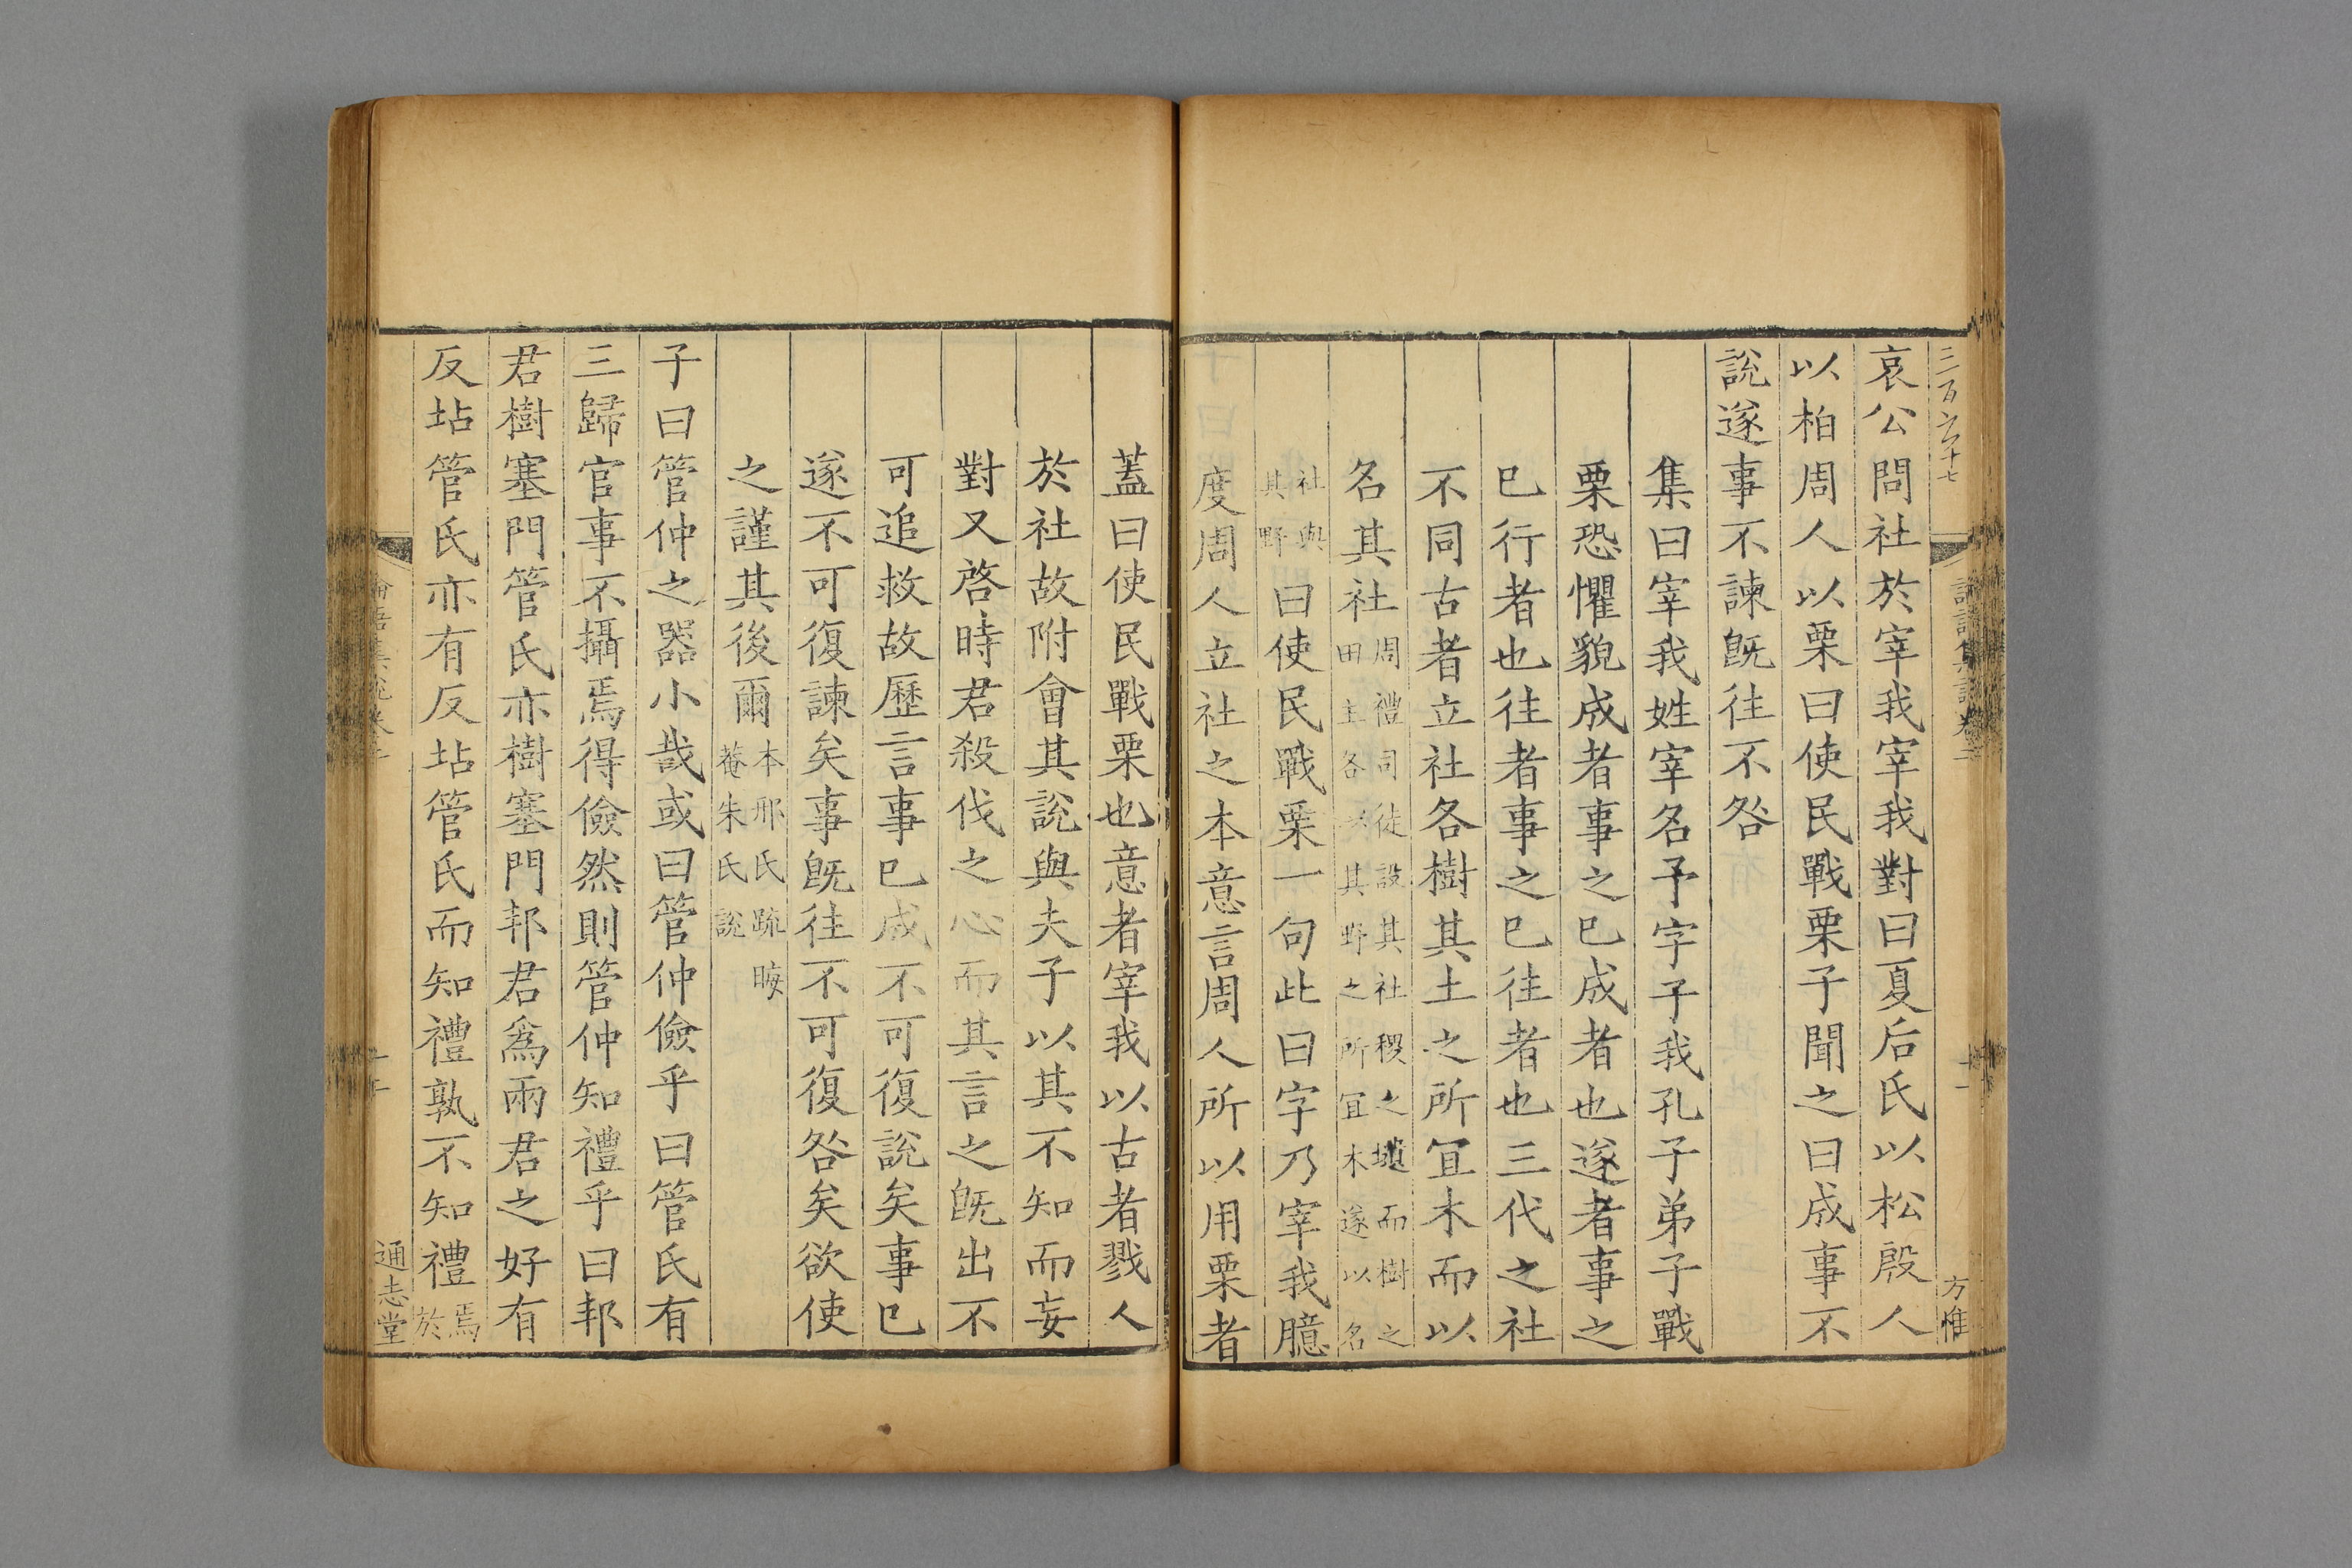 三百六十七
方惟
哀公問社於宰我宰我對曰夏后氏以松殷人
以柏周人以栗曰使民戰栗子聞之曰成事不
說遂事不諫旣往不咎
集曰宰我姓宰名予字子我孔子弟子戰
栗恐懼貌成者事之已成者也遂者事之
已行者也往者事之已往者也三代之社
不同古者立社各樹其土之所冝木而以
名其社周禮司徒設其社稷之壝而樹之田主各以其野之所冝木遂以名
社與其野曰使民戰栗一句此曰字乃宰我臆
度周人立社之本意言周人所以用栗者
蓋曰使民戰栗也意者宰我以古者戮人
於社故附會其說與夫子以其不知而妄
對又啓時君殺伐之心而其言之旣出不
可追救故歷言事已成不可復說矣事已
遂不可復諫矣事旣往不可復咎矣欲使
之謹其後爾本邢氏疏晦菴朱氏說
子曰管仲之器小哉或曰管仲儉乎曰管氏有
三歸官事不攝焉得儉然則管仲知禮乎曰邦
君樹塞門管氏亦樹塞門邦君爲兩君之好有
反坫管氏亦有反坫管氏而知禮孰不知禮焉於
通志堂